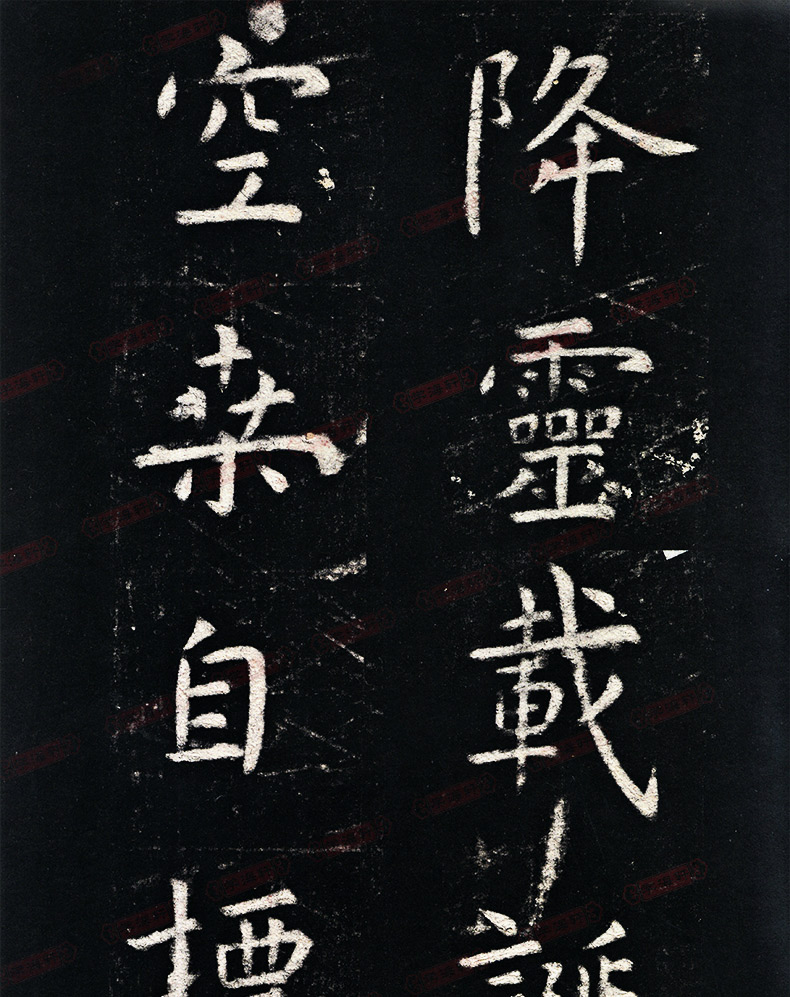 降靈載誕
空桒自標